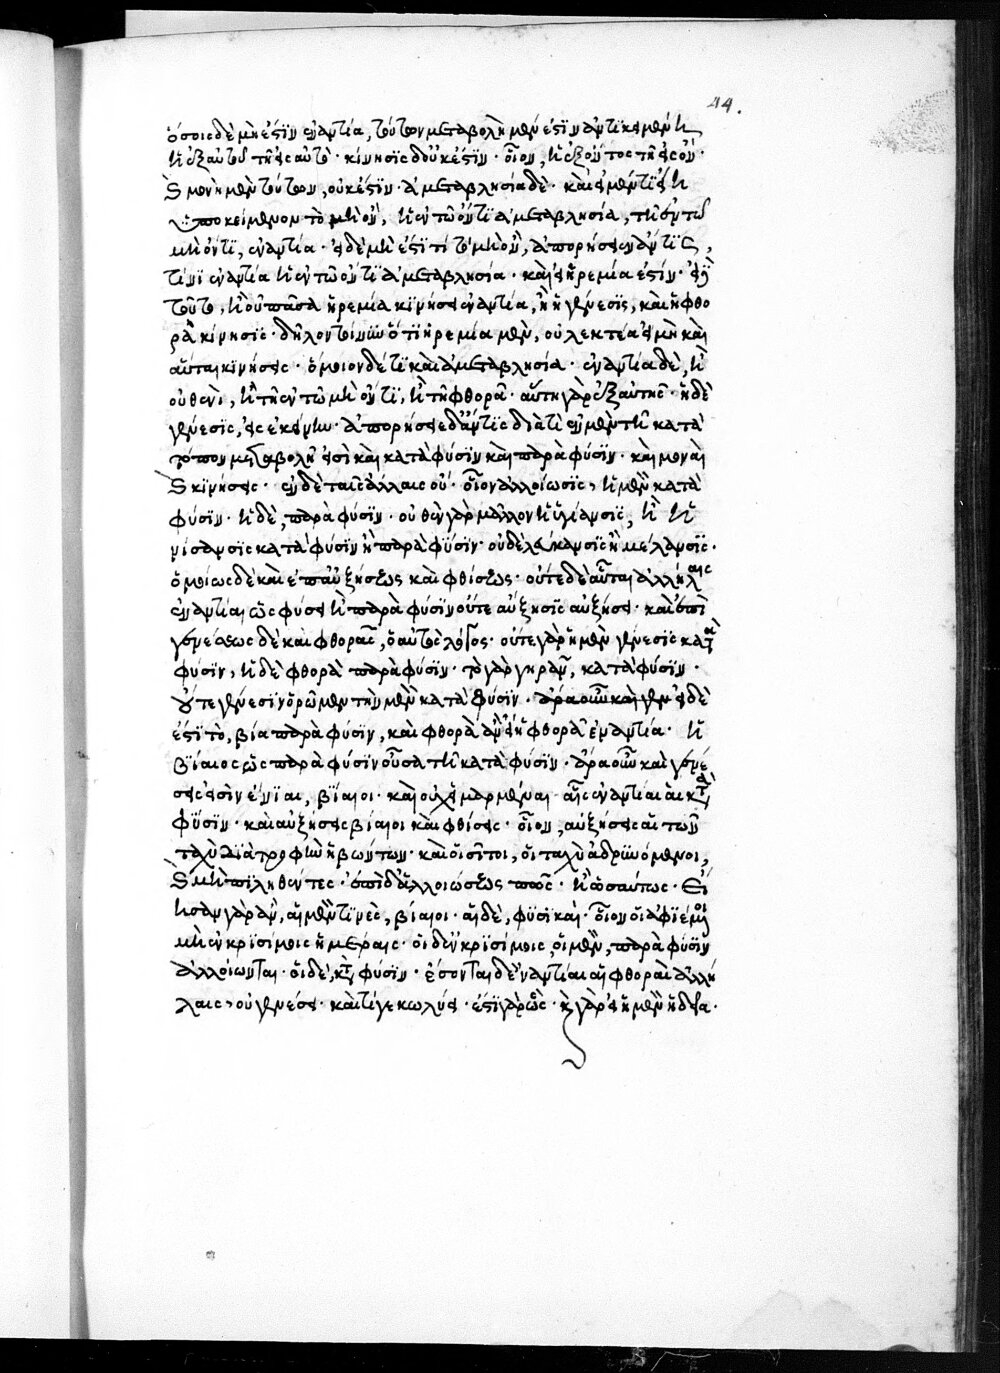 44.
ὅσοις δὲ μή ἐστιν ἐναντία, τούτων μεταβολὴ μέν ἐστιν ἀντικειμένη
ἡ ἐξ αὐτοῦ τῇ εἰς αὐτό· κίνησις δ' οὐκ ἔστιν· οἷον, ἡ ἐξ ὄντος τῇ εἰς ὄν·
καὶ μονὴ μὲν τούτων, οὐκ ἔστιν· ἀμεταβλησία δέ· καὶ εἰ μέν τι εἴη
ὑποκείμενον τὸ μὴ ὄν, ἡ ἐν τῷ ὄντι ἀμεταβλησία, τῇ ἐν τῷ
μὴ ὄντι, ἐναντία· εἰ δὲ μή ἐστί τι τὸ μὴ ὄν, ἀπορήσειεν ἄν τις,
τίνι ἐναντία ἡ ἐν τῷ ὄντι ἀμεταβλησία· καὶ εἰ ἠρεμία ἐστίν· εἰ δὲ
τοῦτο, ἢ οὐ πᾶσα ἠρεμία κινήσει ἐναντία, ἢ ἡ γένεσις, καὶ ἡ φθο
ρὰ κίνησις· δῆλον τοίνυν ὅτι ἠρεμία μὲν, οὐ λεκτέα εἰ μὴ καὶ
αὗται κινήσεις· ὅμοιον δέ τι καὶ ἀμεταβλησία· ἐναντία δὲ, ἢ
οὐθενὶ, ἢ τῇ ἐν τῷ μὴ ὄντι, ἢ τῇ φθορᾷ· αὕτη γὰρ ἐξ αὐτῆς· ἡ δὲ
γένεσις, εἰς ἐκείνην· ἀπορήσειε δ' ἄν τις διὰ τί ἐν μὲν τῇ κατὰ
τόπον μεταβολῇ εἰσὶ καὶ κατὰ φύσιν καὶ παρὰ φύσιν· καὶ μοναὶ
καὶ κινήσεις· ἐν δὲ ταῖς ἄλλαις οὔ· οἷον ἀλλοίωσις, ἡ μὲν κατὰ
φύσιν· ἡ δὲ, παρὰ φύσιν· οὐθὲν γὰρ μᾶλλον ἡ ὑγίανσις, ἢ ἡ
νόσανσις κατὰ φύσιν ἢ παρὰ φύσιν· οὐδὲ λεύκανσις ἢ μέλανσις·
ὁμοίως δὲ καὶ ἐπ' αὐξήσεως καὶ φθίσεως· οὔτε δὲ αὗται ἀλλήλαις
ἐναντίαι ὡς φύσει ἢ παρὰ φύσιν οὔτε αὔξησις αὐξήσει· καὶ ἐπὶ
γενέσεως δὲ καὶ φθορᾶς, ὁ αὐτὸς λόγος· οὔτε γὰρ ἡ μὲν γένεσις κατὰ
φύσιν, ἡ δὲ φθορὰ παρὰ φύσιν· τὸ γὰρ γηρᾶν, κατὰ φύσιν·
οὔτε γένεσιν ὁρῶμεν τὴν μὲν κατὰ φύσιν· ἄρα οὖν καὶ γεν εἰ δέ
ἐστι τὸ, βίᾳ παρὰ φύσιν, καὶ φθορὰ ἂν εἴη φθορᾷ ἐναντία· ἡ
βίαιος ὡς παρὰ φύσιν οὖσα τῇ κατὰ φύσιν· ἄρα οὖν καὶ γενέ
σεις εἰσὶν ἔνιαι, βίαιοι· καὶ οὐχ εἱμαρμέναι· αἷς ἐναντίαι αἱ κατὰ
φύσιν· καὶ αὐξήσεις βίαιοι καὶ φθίσεις· οἷον, αὐξήσεις αἱ τῶν
ταχὺ διὰ τροφὴν ἡβώντων· καὶ οἱ σῖτοι, οἱ ταχὺ ἁδρυνόμενοι,
καὶ μὴ πιληθέντες· ἐπὶ δ' ἀλλοιώσεως πῶς· ἢ ὡσαύτως· εἴ
ησαν γὰρ ἄν, αἱ μέν τινες, βίαιοι· αἱ δὲ, φυσικαί· οἷον οἱ ἀφιέμενοι
μὴ ἐν κρισίμοις ἡμέραις· οἱ δ' ἐν κρισίμοις, οἱ μὲν, παρὰ φύσιν
ἀλλοίωνται· οἱ δὲ, κατὰ φύσιν· ἔσονται δὲ ἐναντίαι αἱ φθοραὶ ἀλλή
λαις, οὐ γενέσει· καὶ τί γε κωλύει· ἔστι γὰρ ὡς· ἢ γὰρ εἰ ἡ μὲν ἡδεῖα·